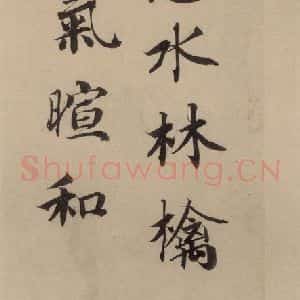 水林檎
氣暄和
Shufawang.CN